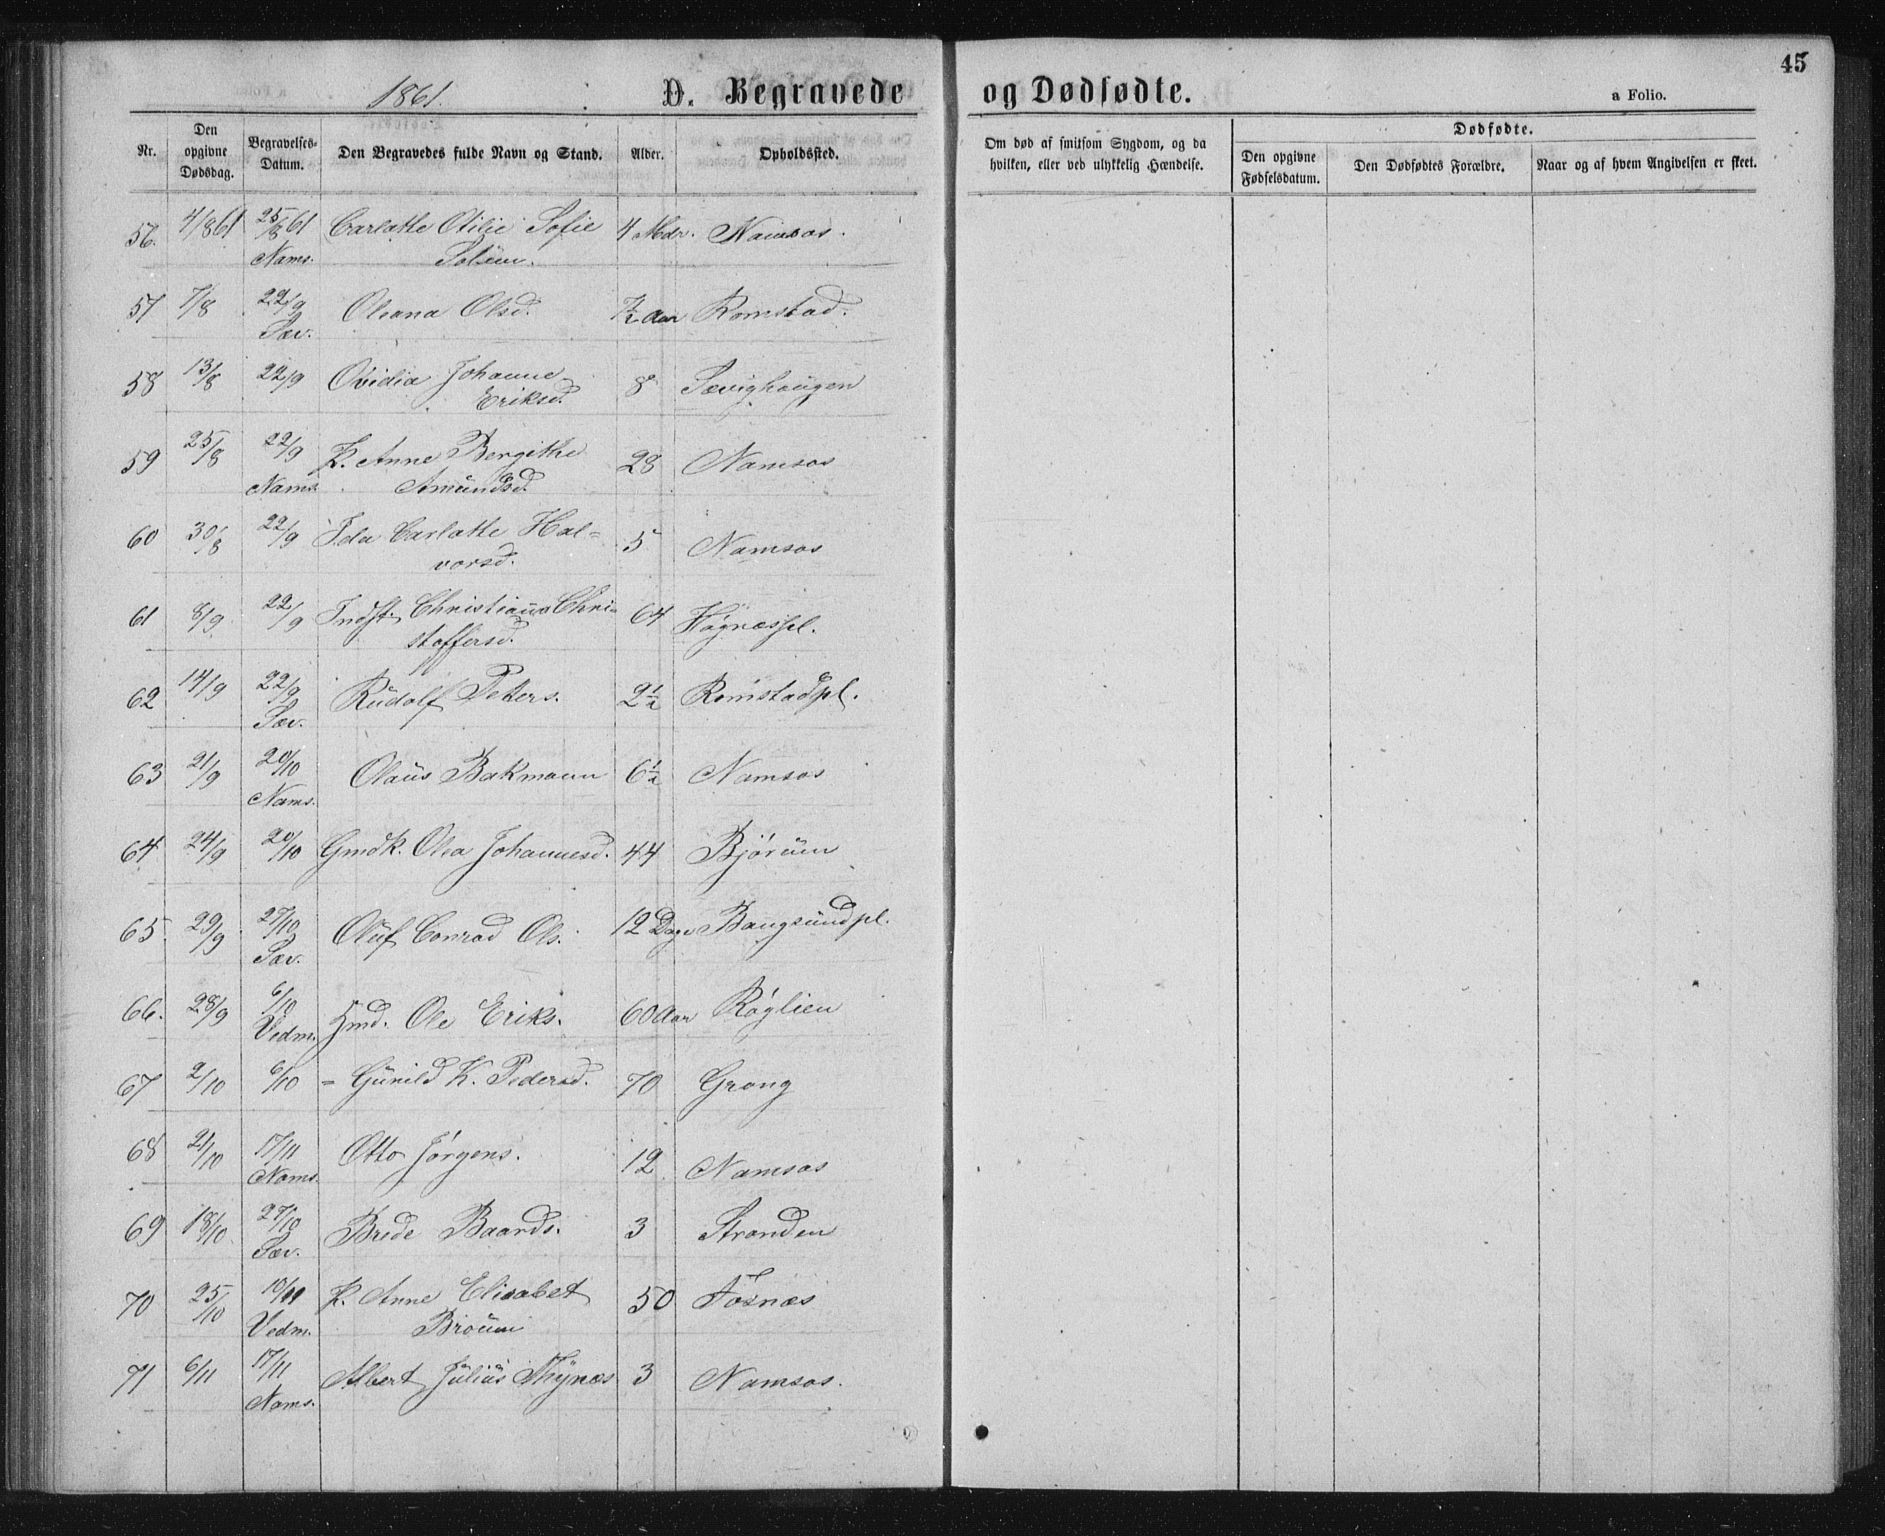 1861. D. Begravede og Dødfødte. 45
a Folio.
Nr. Den opgivne Dødsdag. Begravelses-Datum. Den Begravedes fulde Navn og Stand. Alder. Opholdssted. Om død af smitsom Sygdom, og da hvilken, eller ved ulykkelig Hændelse. Dødfødte. Den opgivne Fødselsdatum. Den Dødfødtes Forældre. Naar og af hvem Angivelsen er skeet.
56. 4/8 61 25/8 61 Carlatte Otilie Sofie 4 Mdr. Namsos.
Nams. Solem.
57 7/8 22/9 Oleana Olsd. ½ Aar Romstad.
Sæv.
58 13/8 22/9 Ovidia Johanne 8 Sævighaugen
Eriksd.
59 25/8 22/9 K. Anne Bergithe 28 Namsos
Nams. Amundsd.
60 30/8 22/9 Ida Carlatte Hal= 5 Namsos
vorsd.
61 8/9 22/9 Indst. Christiana Chri= 64 Høgnæspl.
stoffersd.
62 14/9 22/9 Rudolf Peters. 2½ Romstadpl.
Sæv.
63 21/9 20/10 Olaus Bakmann 6½ Namsos
Nams.
64 24/9 20/10 Gmdk. Olea Johannesd. 44 Bjørum
65. 29/9 27/10 Oluf Conrad Ols. 12 Dage Bangsundpl.
Sæv.
66. 28/9 6/10 Hmd. Ole Eriks. 60 Aar Røglien
Vedm.
67 2/10 6/10 = Gunild K. Pedersd. 70 Grong
68 21/10 17/11 Otto Jørgens. 12 Namsos
Nams.
69 18/10 27/10 Brede Baards. 3 Stranden
Sæv.
70 25/10 10/11 K. Anne Elisabet 50 Fosnæs
Vedm. Broum
71 6/11 17/11 Albert Julius Thynæs 3 Namsos.
Nams.